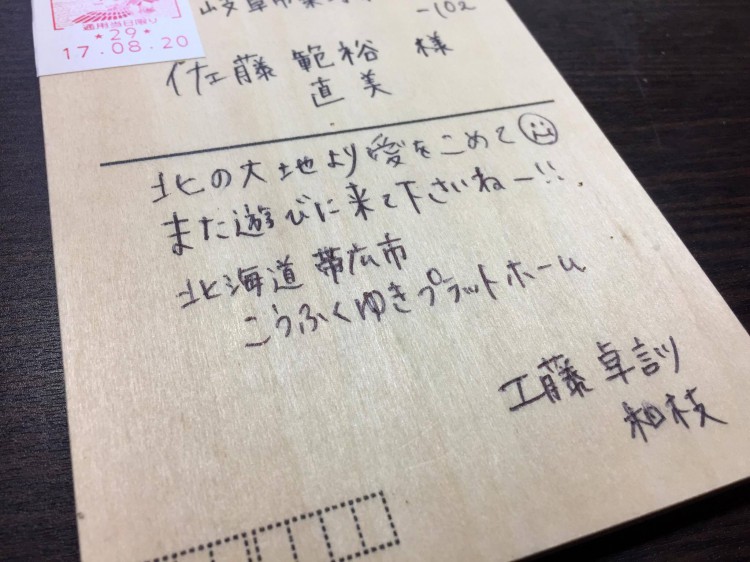 通用当日限り
*29*
17.08.20
岐阜市
-102
佐藤 範裕 様
直美
北の大地より愛をこめて
また遊びに来て下さいねー!!
北海道 帯広市
こうふくゆきプラットホーム
工藤 卓
枝